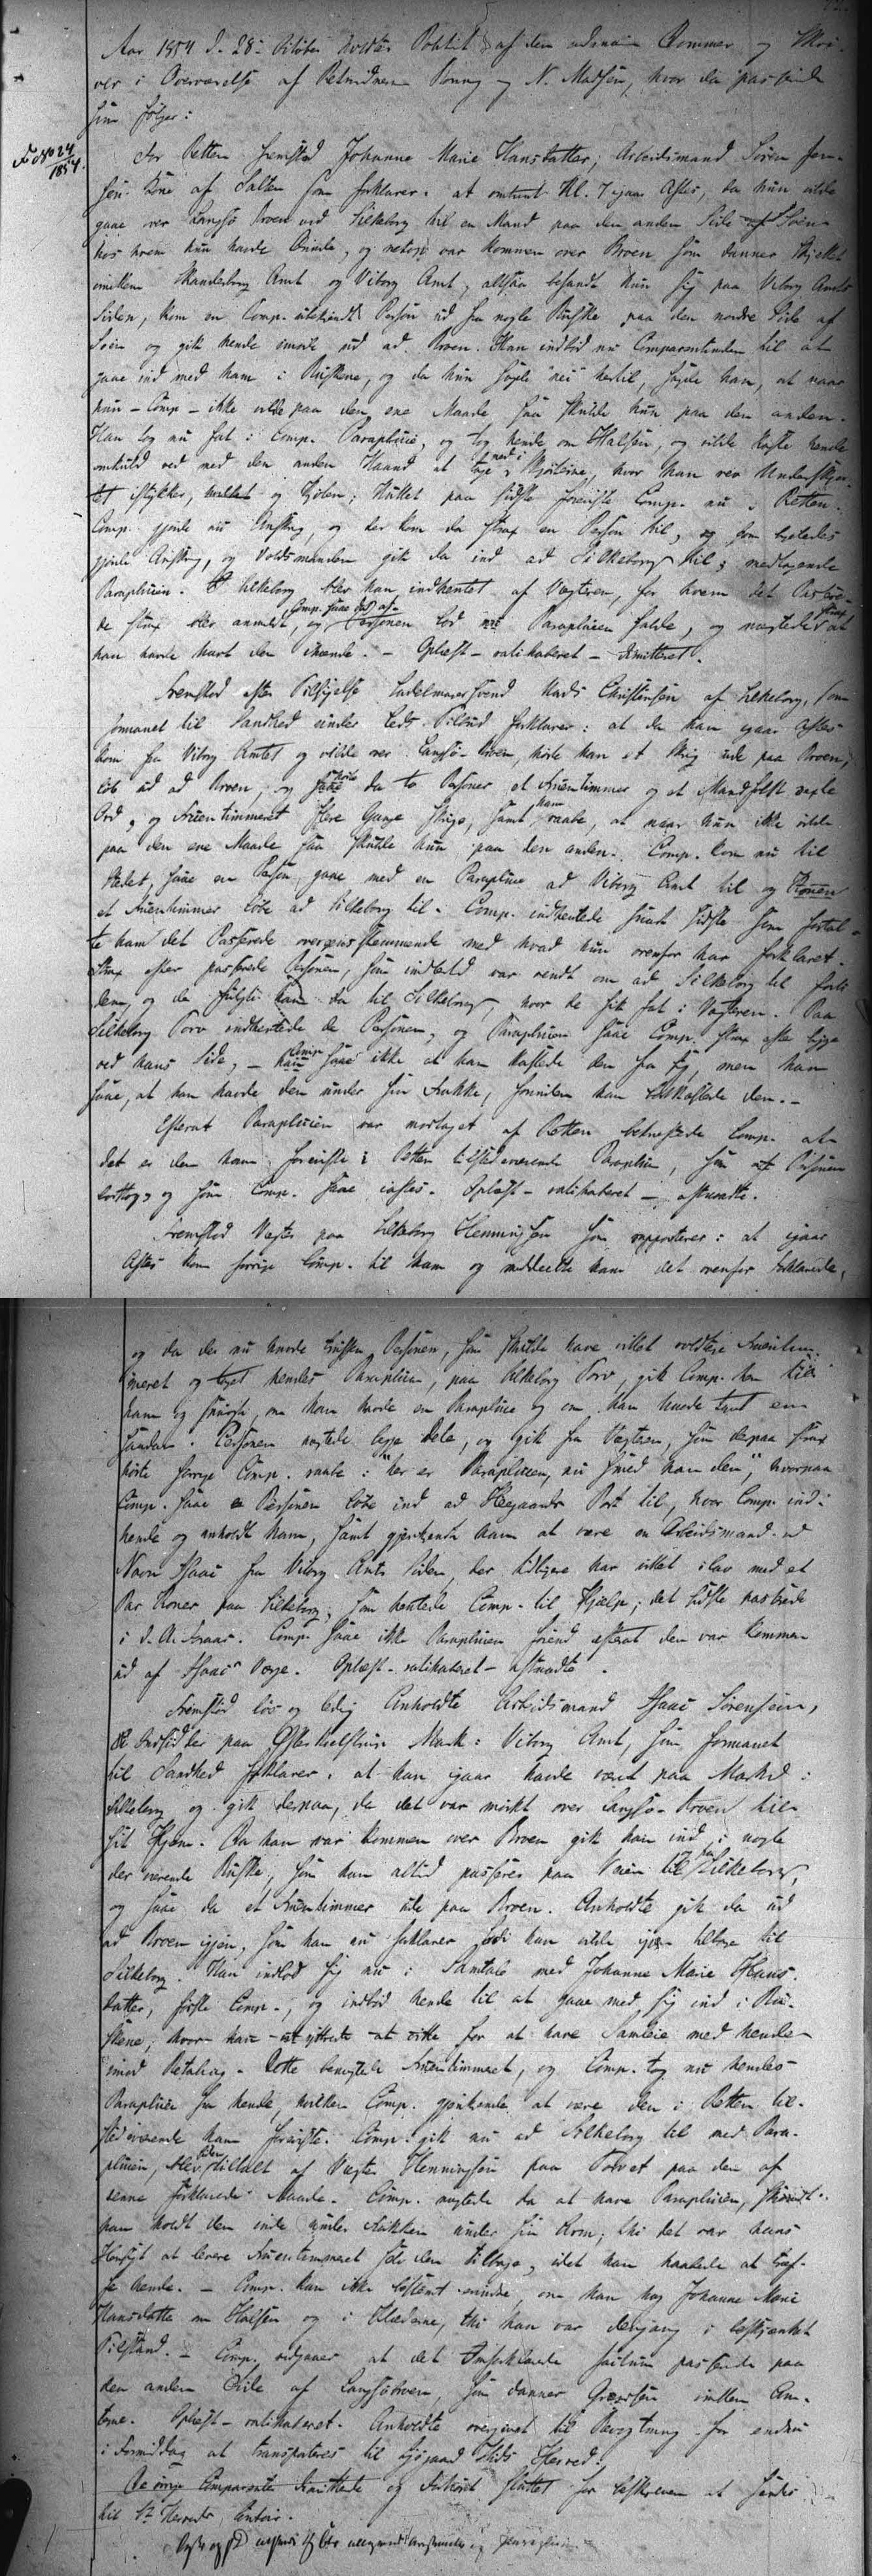 Aar 1854 d. 28de Oktober holdtes Politiret af den udnævnte Dommer og Skri-
ver i Overværelse af Retsvidnerne og N. Madsen, hvor da passerede
som følger:
No 24/1854.
For Retten fremstod Johanne Marie Hansdatter, Arbeidsmand Sören Jen-
sens Kone af Salten som forklarer: at omtrent Kl. 7 igaar Aftes, da hun vilde
gaae over Langsö Broen ved Silkeborg til en Mand paa den anden Side af Söen
hos hvem hun havde Ærinde, og netop var kommen over Broen som danner Skjellet
imellem Skanderborg Amt og Viborg Amt, altsaa befandt hun sig paa Viborg Amts
Siden, kom en Comp. ubekjendt Person ud fra nogle Buske paa den nordre Side af
Söen og gik hende imöde ud ad Broen. Han indböd nu Comparentinden til at
gaae ind med ham i Buskene, og da hun sagde "nei" hertil, sagde han, at naar
hun - Comp - ikke vilde paa den ene Maade saa skulde hun paa den anden.
Han tog nu fat i Comp. Paraplüie, og tog hende om Halsen, og vilde kaste hende
omkuld ved med den anden Haand at tage ned i Skjörterne, hvor han rev Underskjör-
tet istykker, og Kjolen; Hullet paa sidste foreviste Comp. nu i Retten.
Comp. gjorde nu Anskrig, og der kom da strax en Person til, og som ligeledes
gjorde Anskrig, og Voldsmanden gik da ind ad Silkeborg til, medtagende
Paraplüien. I Silkeborg blev han indhentet af Vægteren, for hvem det Passere-
de strax blev anmeldt, og Comp. saae at Personen lod Paraplüien falde, og nægtede strax at
han havde havt den ihænde. - Oplæst - ratihaberet - demitteret.
Fremstod efter Tilsigelse Sadelmagersvend Mads Christensen af Silkeborg, som
formanet til Sandhed under Eds Tilbud forklarer: at da han igaar Aftes
kom fra Viborg Amtet og vilde over Langsö-Broen, hörte han et Skrig ude paa Broen,
löb ud ad Broen, og hörte da to Personer et Fruentimmer og et Mandfolk vexle
Ord, og Fruentimmeret flere Gange skrige, samt ham raabe, at naar hun ikke vilde
paa den ene Maade saa skulde hun paa den anden. Comp. kom nu til
Stedet, saae en Person gaae med en Paraplüie ad Viborg Amt til og Konen
et Fruentimmer löbe ad Silkeborg til. Comp. indhentede snart sidste som fortal-
te ham det Passerede overensstemmende med hvad hun ovenfor har forklaret.
Strax efter passerede Personen, som imidlertid var vendt om ad Silkeborg til forbi
dem, og de fulgte ham da til Silkeborg, hvor de fik fat i Vægteren. Paa
Silkeborg Torv indhentede de Personen, og Paraplüien saae Comp. strax efter ligge
ved hans Side, - Comp. saae ikke at han kastede den fra sig, men han
saae, at han havde den under sin Frakke, forinden han bortkastede den. -
Efterat Paraplüien var modtaget af Retten bekræftede Comp. at
det er den ham foreviste i Retten tilstedeværende Paraplüie, som Personen
borttog, og som Comp. saae iaftes. Oplæst - ratihaberet - aftraadte.
Fremstod Vægter paa Silkeborg Henningsen som rapporterer: at igaar
Aftes kom forrige Comp. til ham og meddeelte ham det ovenfor forklarede,
og da de nu havde truffen Personen, som skulde have villet voldtage Fruentim-
meret og taget hendes Paraplüie, paa Silkeborg Torv, gik Comp. hen til
ham og spurgte, om han havde en Paraplüie og om han havde taget en
saadan. Personen nægtede begge Dele, og gik fra Vægteren, som derpaa strax
hörte forrige Comp. raabe: "her er Paraplüien, nu smed han den", hvorpaa
Comp. saae Personen löbe ind ad Hegaards Port til, hvor Comp. ind-
hentede og anholdt ham, samt gjenkjendte ham at være en Arbeidsmand ved
Navn Isaac fra Viborg Amts Siden, der tidligere har villet ilav med et
Par Koner paa Silkeborg, som hentede Comp. til Hjælp; det sidste passerede
i d. A. Comp. saae ikke Paraplüien förend efterat den var kommen
ud af Isaacs Værge. Oplæst - ratihaberet - aftraadte.
Fremstod lös og ledig Anholdte Arbeidsmand Isaac Sörensen,
Indsidder paa Mark i Viborg Amt, som formanet
til Sandhed forklarer: at han igaar havde været paa Marked i
Silkeborg og gik derpaa, da det var mörkt over Langsö-Broen til
sit Hjem. Da han var kommen over Broen gik han ind i nogle
der værende Buske, som han altid passerer paa Veien til og fra Silkeborg,
og saae da et Fruentimmer ude paa Broen. Anholdte gik da ud
ad Broen igjen, som han nu forklarer fordi han vilde igjen tilbage til
Silkeborg. Han indlod sig nu i Samtale med Johanne Marie Hans-
datter, förste Comp., og indböd hende til at gaae med sig ind i Bu-
skene, for at have Samleie med hende
imod Betaling. Dette benægtede Fruentimmeret, og Comp. tog nu hendes
Paraplüie fra hende, hvilken Comp. gjenkjender at være den i Retten til-
stedeværende ham foreviste. Comp. gik nu ad Silkeborg til med Para-
plüien, blev siden tiltalt af Vægter Henningsen paa Torvet paa den af
denne forklarede Maade. Comp. nægtede da at have Paraplüien, skjöndt
han holdt den inde under Frakken under sin Arm; thi det var hans
Hensigt at levere Fruentimmeret selv den tilbage, idet han haabede at træf-
fe hende. - Comp. kan ikke bestemt erindre, om han tog Johanne Marie
Hansdatter om Halsen og i Klæderne, thi han var dengang i beskjænket
Tilstand. - Comp. vedgaaer at det Omforklarede passerede paa
den anden Side af Langsöbroen, som danner Grændsen imellem Am-
terne. Oplæst - ratihaberet. Anholdte overgivet til Bevogtning for endnu
i Formiddag at transporteres til Herred.
De övrige Comparenter demitterede og Forhöret sluttet for beskreven at sendes
til Herreds Contoir.